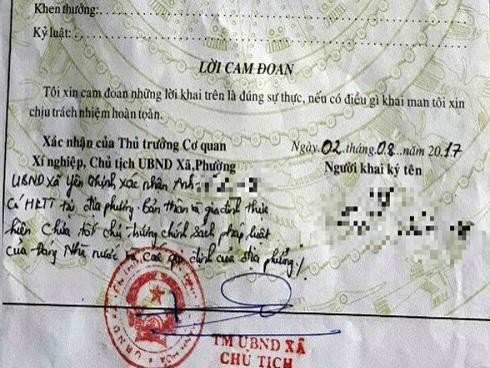 Khen thưởng:
Kỷ luật:
LỜI CAM ĐOAN
Tôi xin cam đoan những lời khai trên là đúng sự thực, nếu có điều gì khai man tôi xin
chịu trách nhiệm hoàn toàn.
Xác nhận của Thủ trưởng Cơ quan
Xí nghiệp, Chủ tịch UBND Xã,Phường
Ngày 02 tháng 08 năm 2017
Người khai ký tên
UBND xã Yên Chính xác nhận Anh:
Có HKTT tại địa phương. Bản thân và gia đình thực
hiện chưa tốt chủ trương chính sách pháp luật
của Đảng Nhà nước và các quy định của địa phương./
TM UBND XÃ
CHỦ TỊCH